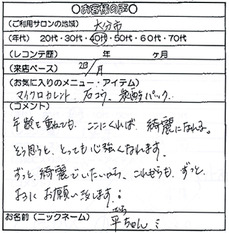 ○お客様の声○
(ご利用サロンの地域) 大分市
(年代) 20代・30代・40代・50代・60代・70代
(レコンテ歴) 年 ヶ月
(来店ペース) 2回/月
(お気に入りのメニュー・アイテム)
マイクロカレント、石コウ、炭酸パック
(コメント)
年齢を重ねても、ここにくれば、綺麗になれる。
そう思うと、とっても心強くなれます。
ずっと、綺麗でいたいから、これからも、ずっと、
お願い致します。
お名前(ニックネーム)
平ちゃん